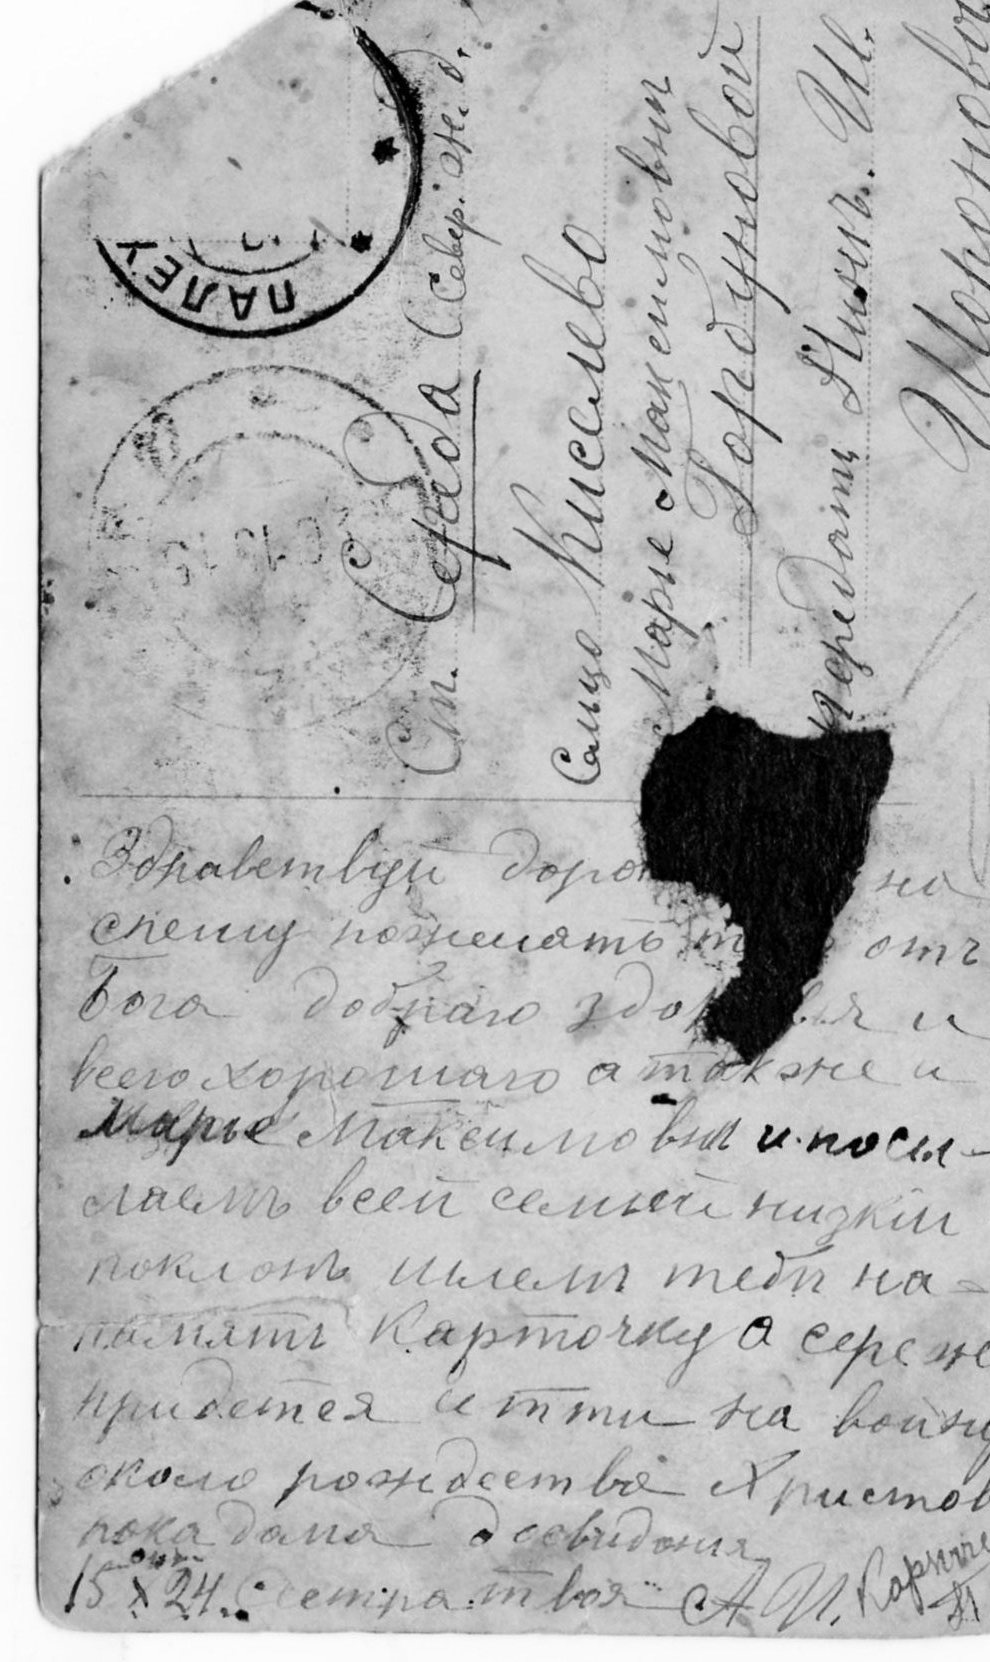 ПАЛЕХ
Ст. Середа (Север. ж. д.
Сельцо Киселево
Марье Максимовны
Горбуновой
передать Нинъ. И.
Здравствуй доро на
спешу пожелать т отъ
Бога добраго здо вья и
всего хорошаго а также и
Марье Максимовны и посы-
лаемъ всей семьей низкiй
поклонъ шлемъ тебѣ на=
память карточку а сереже
придется итти на войну
около рождества Христов
пока дома досвидония
15 X 24. Сестра твоя А И.